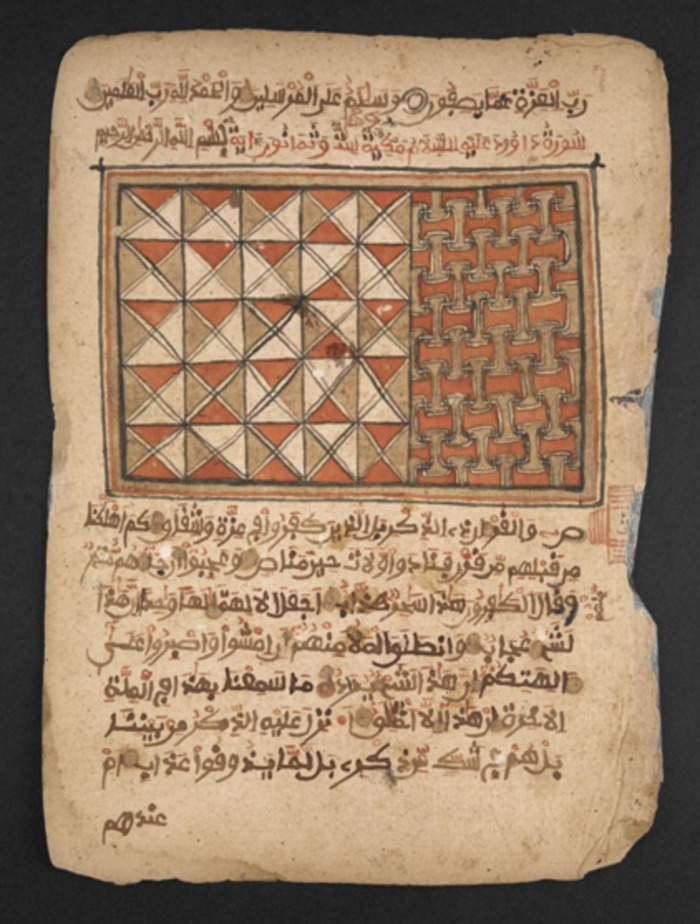 رب العزة عما يصفون وسلم على المرسلين والحمد لله رب العلمين
سورة داورد عليه السلام مكية ست وثمانون اية بسم الله الرحمن الرحيم
ص والقرءان ذي الذكر بل الذين كفروا في عزة وشقاق كم اهلكنا
من قبلهم من قرن فنادوا ولات حين مناص وعجبوا ان جاءهم منذر
منهم وقال الكفرون هذا سحر كذاب اجعل الالهة الها وحدا ان هذا
لشيء عجاب وانطلق الملا منهم ان امشوا واصبروا على
الهتكم ان هذا لشيء يراد ما سمعنا بهذا في الملة
الاخرة ان هذا الا اختلق انزل عليه الذكر من بيننا
بل هم في شك من ذكري بل لما يذوقوا عذاب ام
عندهم